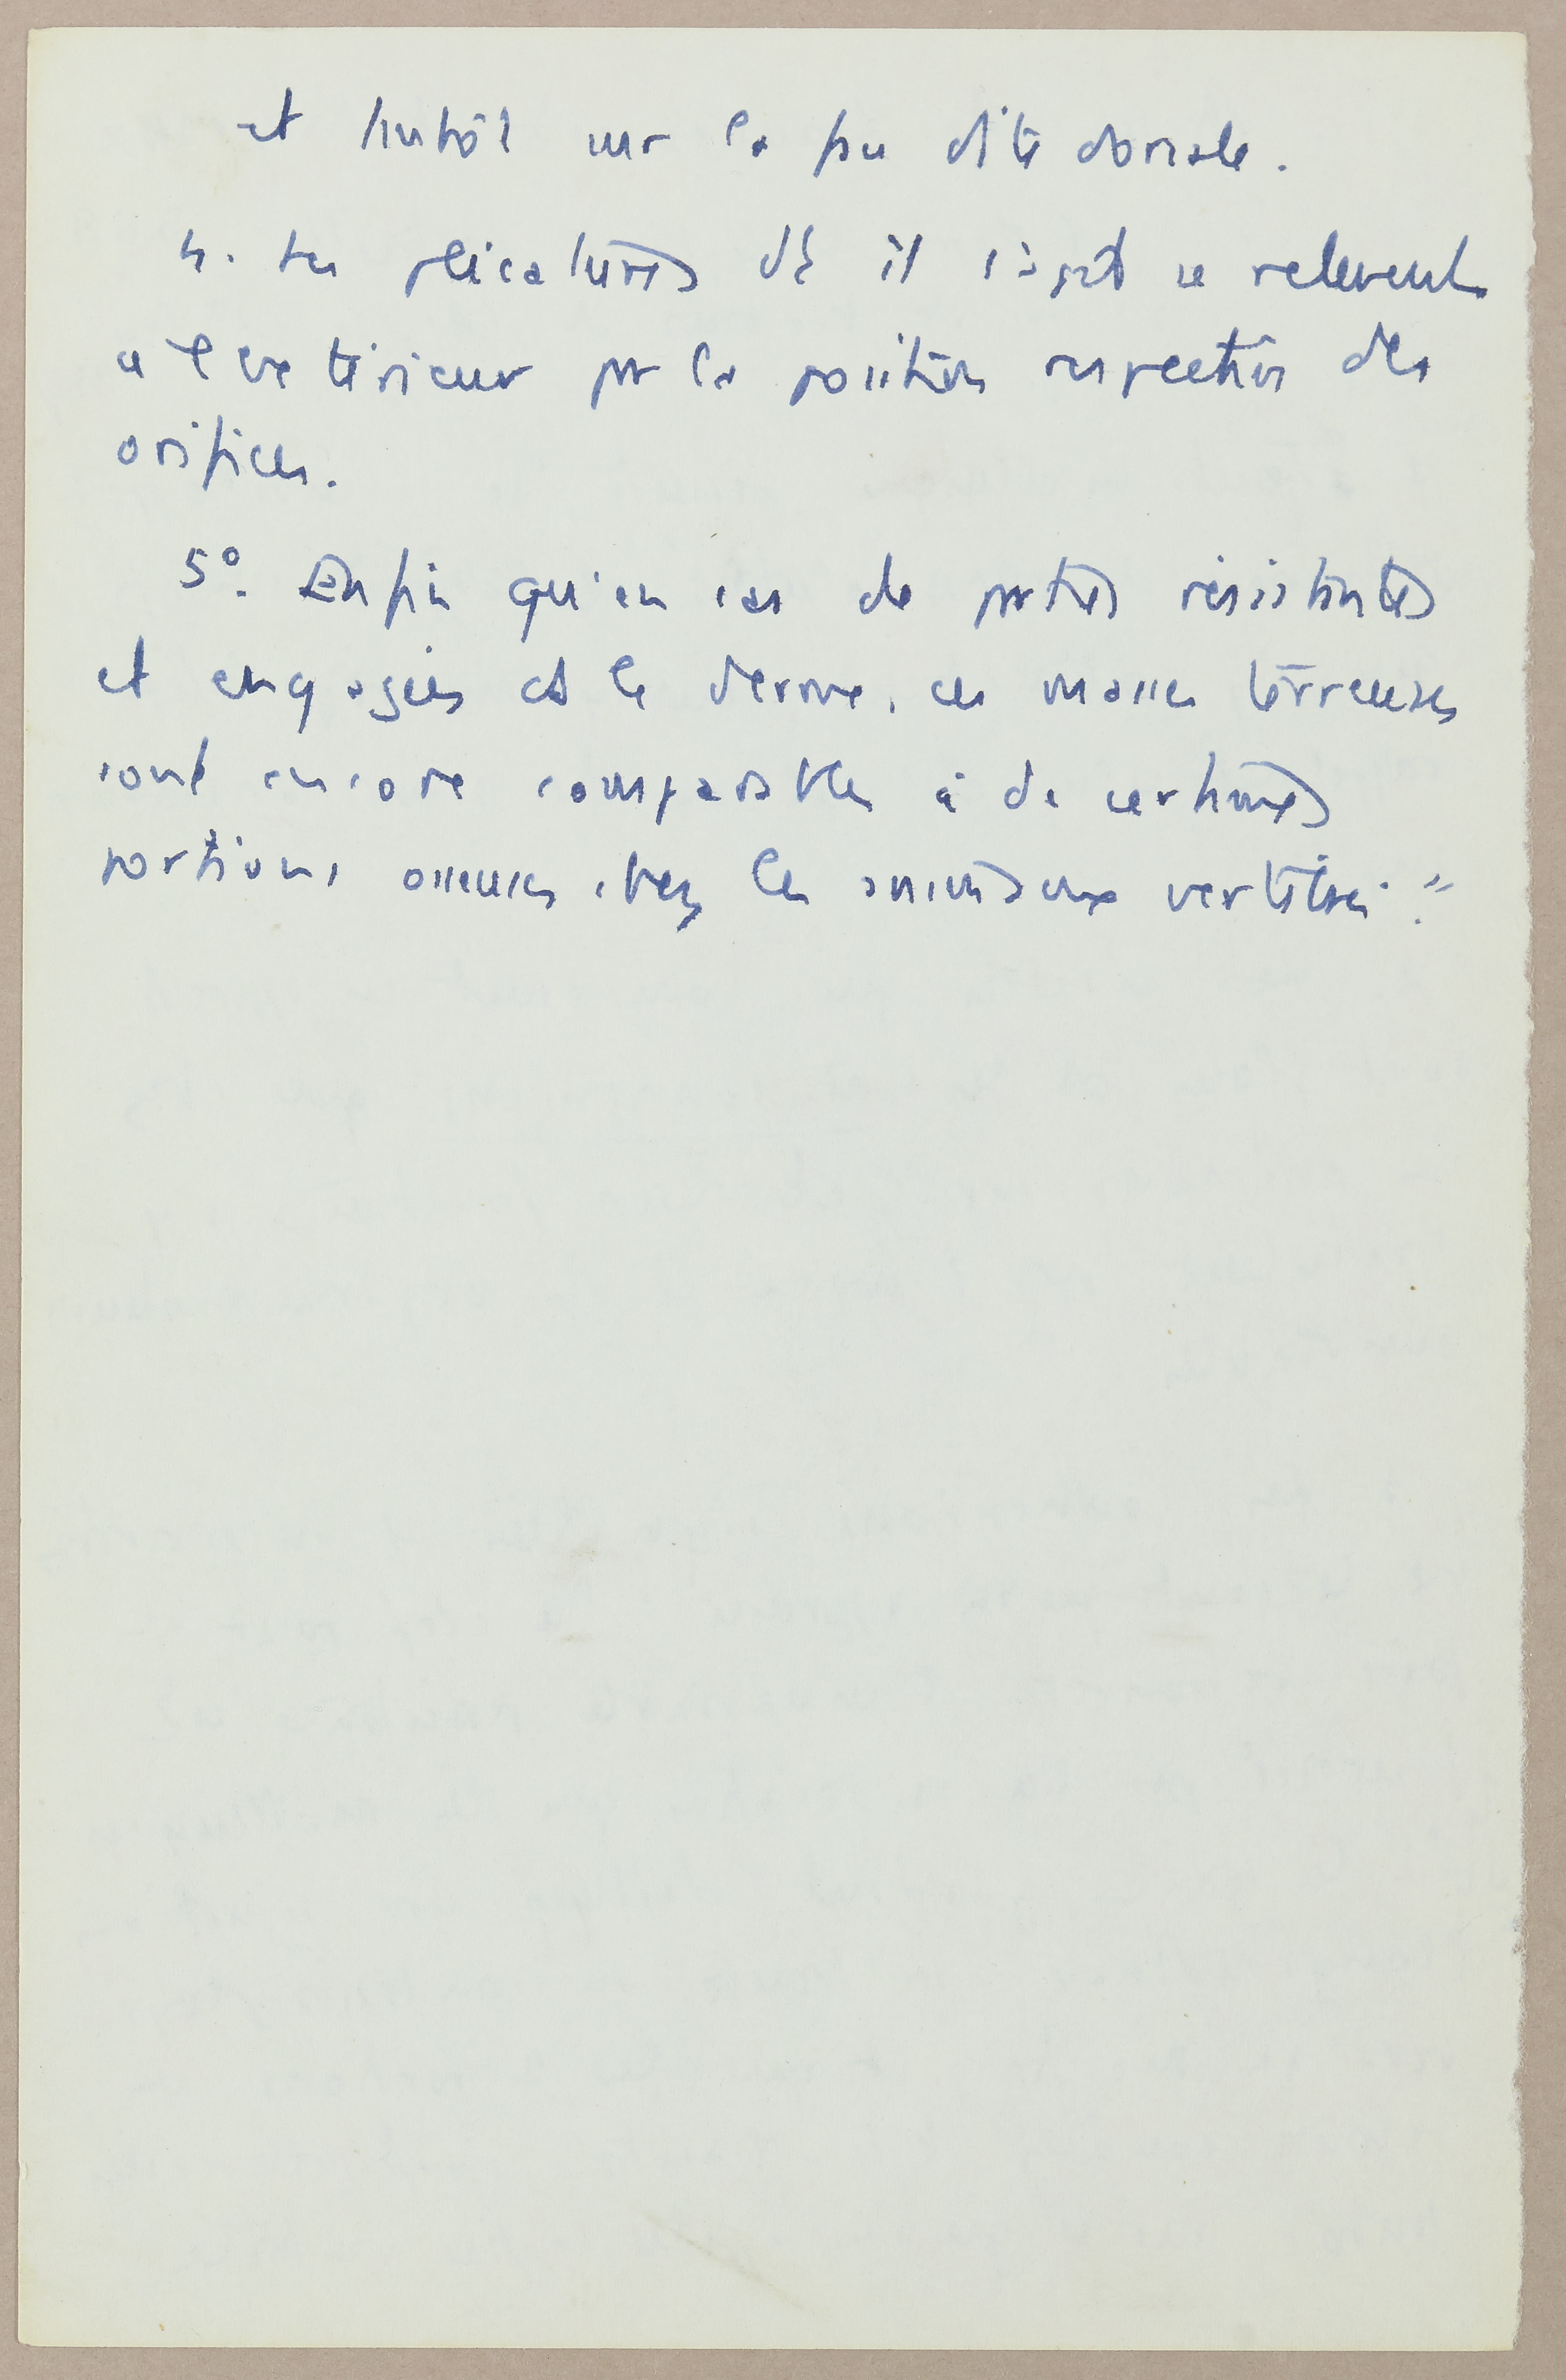 et tantôt sur la face dite dorsale.
4. Les plicatures dt il s'agit se relevent
a l'exterieur par la position respective des
orifices.
5°. Enfin qu'en cas de parties résistantes
et engagées ds le derme, ces masses terreuses
sont encore comparables à de certaines
portions osseuses chez les animaux vertébrés."